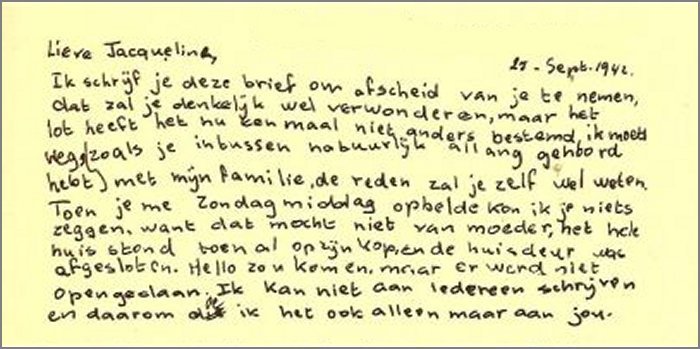 Lieve Jacqueline,
25-Sept. 1942.
Ik schrijf je deze brief om afscheid van je te nemen,
dat zal je denkelijk wel verwonderen, maar het
lot heeft het nu eenmaal niet anders bestemd, ik moet
weg, (zoals je intussen natuurlijk allang gehoord
hebt) met mijn familie, de reden zal je zelf wel weten.
Toen je me Zondagmiddag opbelde kon ik je niets
zeggen, want dat mocht niet van moeder, het hele
huis stond toen al op zijn kop, en de huisdeur was
afgesloten. Hello zou komen, maar er werd niet
opengedaan. Ik kan niet aan iedereen schrijven
en daarom doe ik het ook alleen maar aan jou.